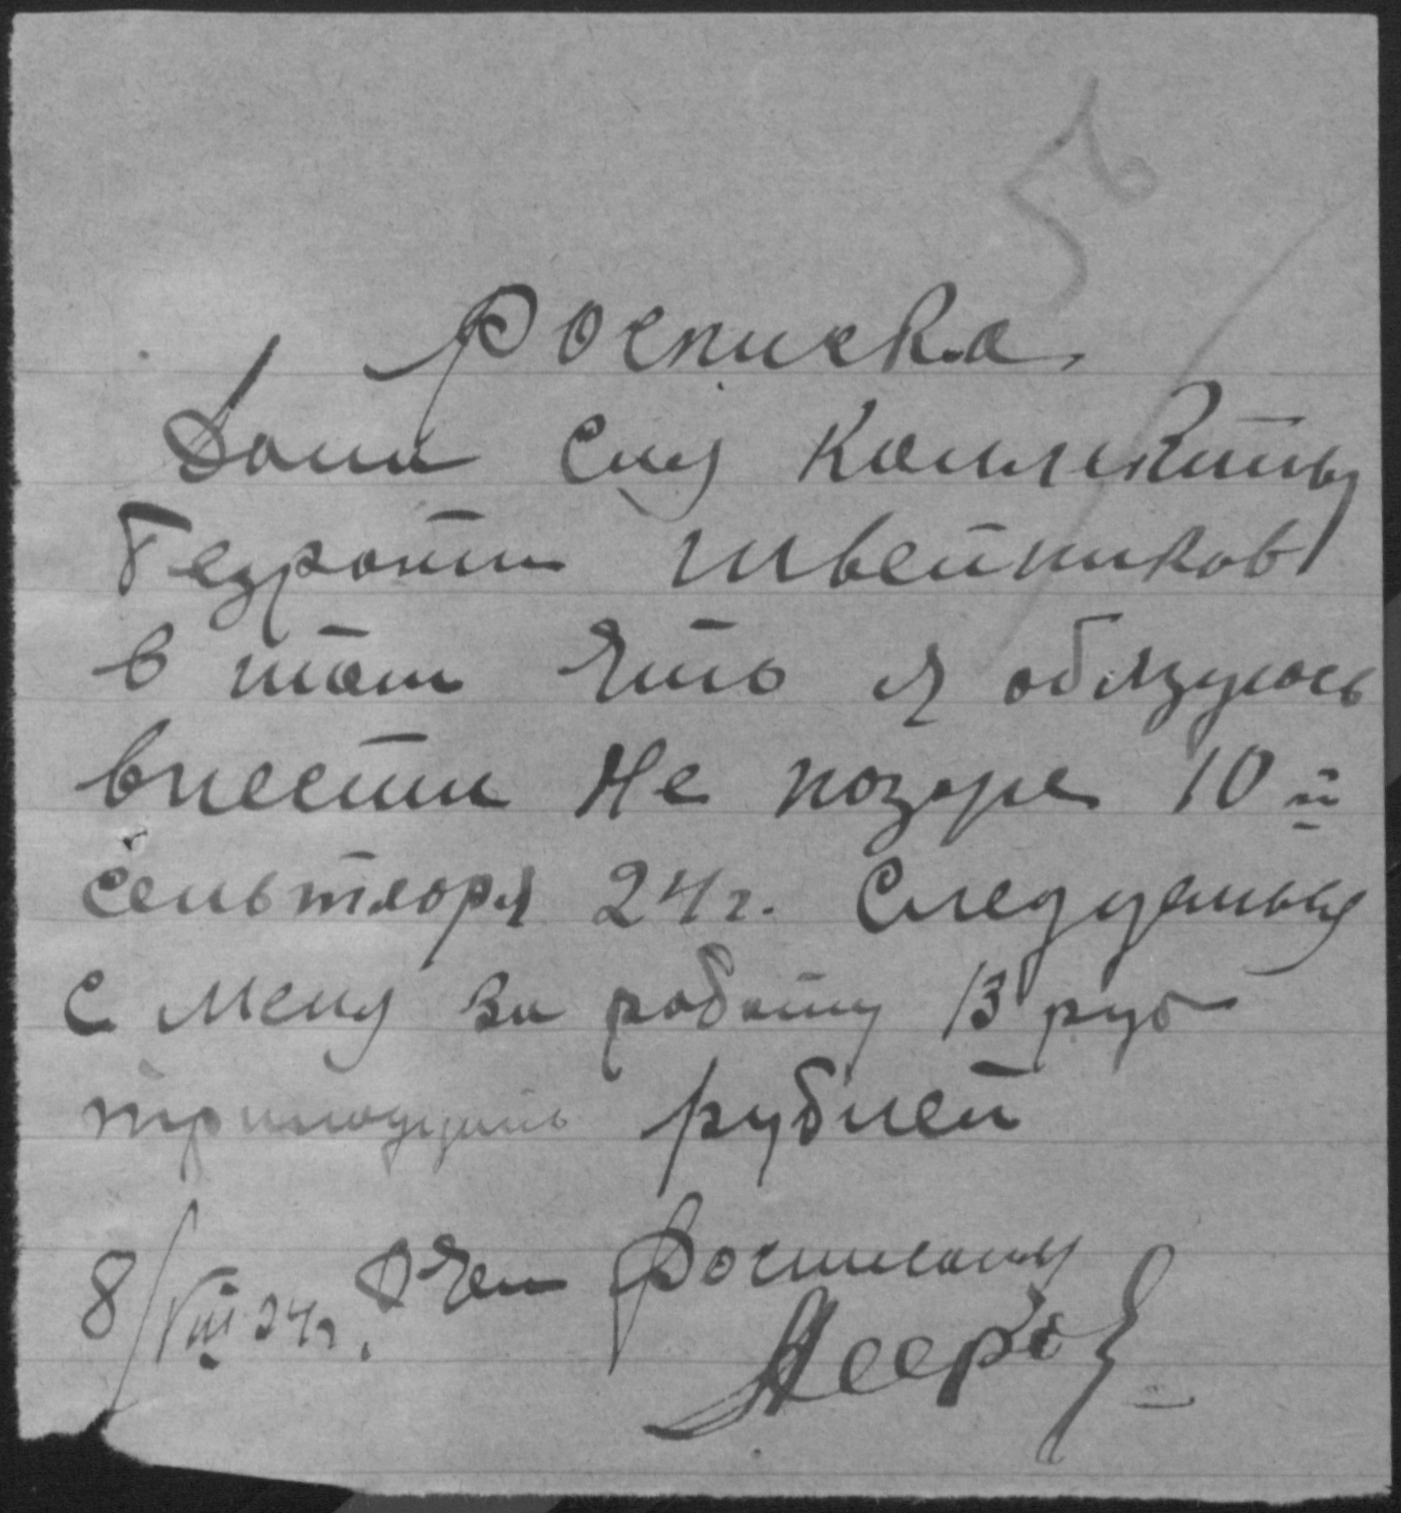 56
Росписка
Дана сия Коллективу
безработн швейников
в том что я обязуюсь
внести не позже 10 й
сеньтября 24 г. Следуемыя
с меня за работу 13 руб
тринадцать рублей
8/VIII 24 г. В чем Росписаня